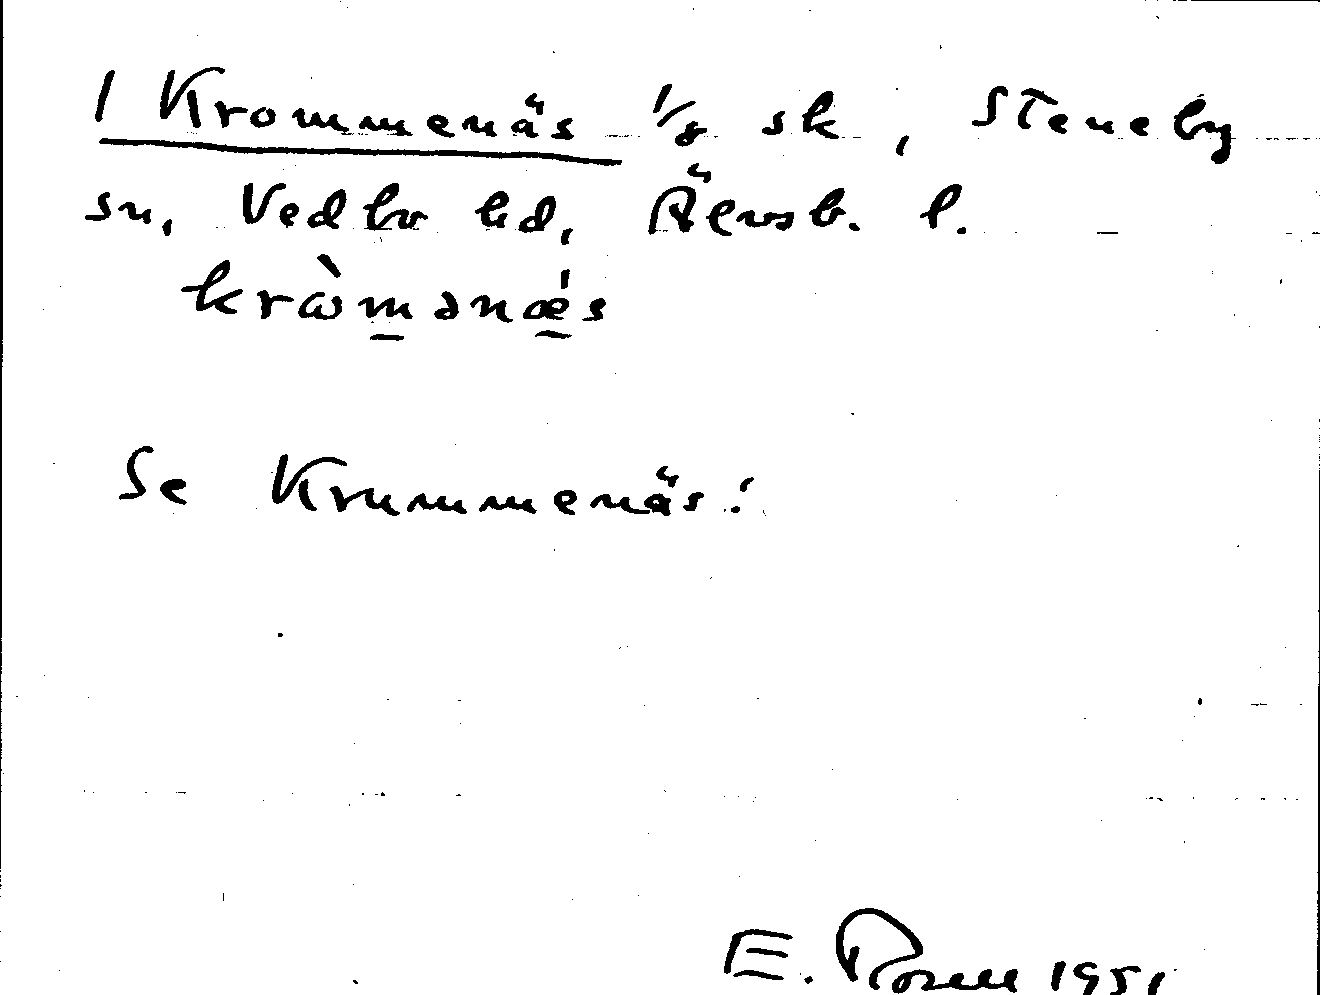 1 Krommenäs 1/8 sk, Steneby
sn, Vedbo hd, Älvsb. l.
kròmənǽs
Se Krummenäs!
E. Rosell 1951